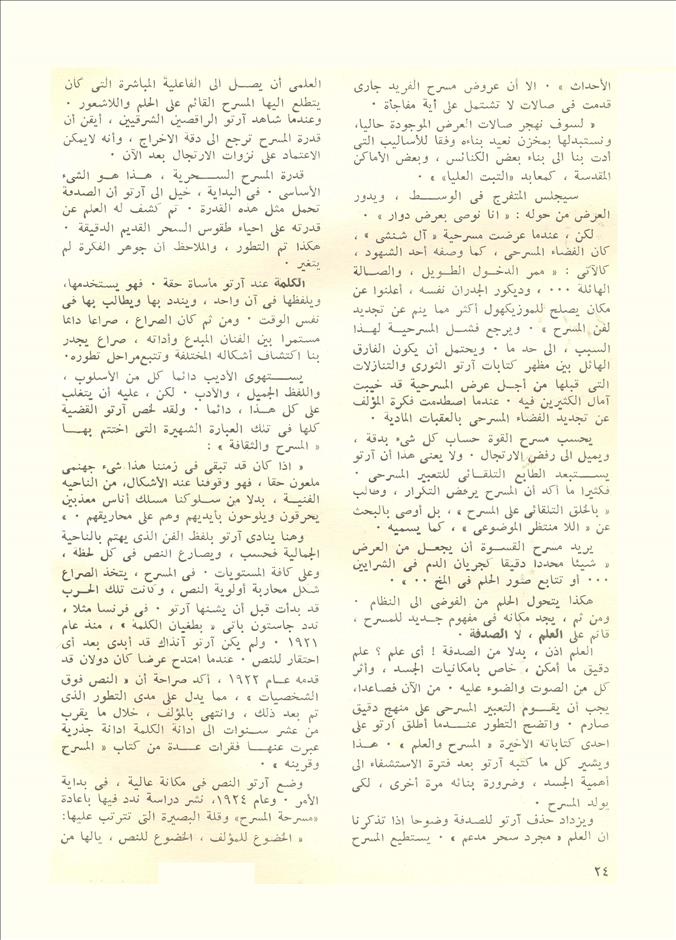 الأحداث » ٠ الا أن عروض مسرح الفريد جارى
قدمت فى صالات لا تشتمل على أية مفاجأة ٠
« لسوف نهجر صالات العرض الموجودة حاليا،
ونستبدلها بمخزن نعيد بناءه وفقا للأساليب التى
أدت بنا الى بناء بعض الكنائس ، وبعض الأماكن
المقدسة ، كمعابد «التبت العليا» ٠
سيجلس المتفرج فى الوسط ، ويدور
العرض من حوله : « انا نوصى بعرض دوار » ٠
لكن ، عندما عرضت مسرحية « آل شنشى » ،
كان الفضاء المسرحى ، كما وصفه أحد الشهود ،
كالآتى : « ممر الدخول الطويل ، والصالة
الهائلة ٠٠٠ ، وديكور الجدران نفسه ، أعلنوا عن
مكان يصلح للموزيكهول أكثر مما ينم عن تجديد
لفن المسرح » ٠ ويرجع فشل المسرحية لهذا
السبب ، الى حد ما ٠ ويحتمل أن يكون الفارق
الهائل بين مظهر كتابات آرتو الثورى والتنازلات
التى قبلها من أجل عرض المسرحية قد خيبت
آمال الكثيرين فيه ٠ عندما اصطدمت فكرة المؤلف
عن تجديد الفضاء المسرحى بالعقبات المادية ٠
يحسب مسرح القوة حساب كل شىء بدقة ،
ويميل الى رفض الارتجال ٠ ولا يعنى هذا أن آرتو
يستبعد الطابع التلقائى للتعبير المسرحى ٠
فكثيرا ما أكد أن المسرح يرفض التكرار ، وطالب
« بالخلق التلقائى على المسرح » ، بل أوصى بالبحث
عن « اللا منتظر الموضوعى » ، كما يسميه ٠
يريد مسرح القسوة أن يجعل من العرض
« شيئا محددا دقيقا كجريان الدم فى الشرايين
٠٠٠ أو تتابع صور الحلم فى المخ ٠٠ » ٠
هكذا يتحول الحلم من الفوضى الى النظام ٠
ومن ثم ، يجد مكانه فى مفهوم جديد للمسرح ،
قائم على العلم ، لا الصدفة ٠
العلم اذن ، بدلا من الصدفة ! أى علم ؟ علم
دقيق ما أمكن ، خاص بامكانيات الجسد ، وأثر
كل من الصوت والضوء عليه ٠ من الآن فصاعدا،
يجب أن يقوم التعبير المسرحى على منهج دقيق
صارم ٠ واتضح التطور عندما أطلق آرتو على
احدى كتاباته الأخيرة « المسرح والعلم » ٠ هذا
ويشير كل ما كتبه آرتو بعد فترة الاستشفاء الى
أهمية الجسد ، وضرورة بنائه مرة أخرى ، لكى
يولد المسرح ٠
ويزداد حذف آرتو للصدفة وضوحا اذا تذكرنا
ان العلم « مجرد سحر مدعم » ٠ يستطيع المسرح
العلمى أن يصل الى الفاعلية المباشرة التى كان
يتطلع اليها المسرح القائم على الحلم واللاشعور ٠
وعندما شاهد آرتو الراقصين الشرقيين ، أيقن أن
قدرة المسرح ترجع الى دقة الاخراج ، وأنه لايمكن
الاعتماد على نزوات الارتجال بعد الآن ٠
قدرة المسرح السحرية ، هذا هو الشىء
الأساسى ٠ فى البداية ، خيل الى آرتو أن الصدفة
تحمل مثل هذه القدرة ٠ ثم كشف له العلم عن
قدرته على احياء طقوس السحر القديم الدقيقة ٠
هكذا تم التطور ، والملاحظ أن جوهر الفكرة لم
يتغير ٠
الكلمة عند آرتو مأساة حقة ٠ فهو يستخدمها،
ويلفظها فى آن واحد ، ويندد بها ويطالب بها فى
نفس الوقت ٠ ومن ثم كان الصراع ، صراعا دائما
مستمرا بين الفنان المبدع وأداته ، صراع يجدر
بنا اكتشاف أشكاله المختلفة وتتبع مراحل تطوره٠
يستهوى الأديب دائما كل من الأسلوب ،
واللفظ الجميل ، والأدب ٠ لكن ، عليه أن يتغلب
على كل هذا ، دائما ٠ ولقد لخص آرتو القضية
كلها فى تلك العبارة الشهيرة التى اختتم بها
« المسرح والثقافة » :
« اذا كان قد تبقى فى زمننا هذا شىء جهنمى
ملعون حقا ، فهو وقوفنا عند الأشكال، من الناحية
الفنية ، بدلا من سلوكنا مسلك أناس معذبين
يحرقون ويلوحون بأيديهم وهم على محاريقهم ٠ »
وهنا ينادى آرتو بلفظ الفن الذى يهتم بالناحية
الجمالية فحسب ، ويصارع النص فى كل لحظة ،
وعلى كافة المستويات ٠ فى المسرح ، يتخذ الصراع
شكل محاربة أولوية النص ، وكانت تلك الحرب
قد بدأت قبل أن يشنها آرتو ٠ فى فرنسا مثلا ،
ندد جاستون باتى « بطغيان الكلمة » ، منذ عام
١٩٢١ ٠ ولم يكن آرتو آنذاك قد أبدى بعد أى
احتقار للنص ٠ عندما امتدح عرضا كان دولان قد
قدمه عام ١٩٢٢ ، أكد صراحة أن « النص فوق
الشخصيات » ، مما يدل على مدى التطور الذى
تم بعد ذلك ، وانتهى بالمؤلف ، خلال ما يقرب
من عشر سنوات الى ادانة الكلمة ادانة جذرية
عبرت عنها فقرات عدة من كتاب « المسرح
وقرينه » ٠
وضع آرتو النص فى مكانة عالية ، فى بداية
الأمر ٠ وعام ١٩٢٤، نشر دراسة ندد فيها باعادة
«مسرحة المسرح» وقلة البصيرة التى تترتب عليها:
« الخضوع للمؤلف ، الخضوع للنص ، يالها من
٢٤